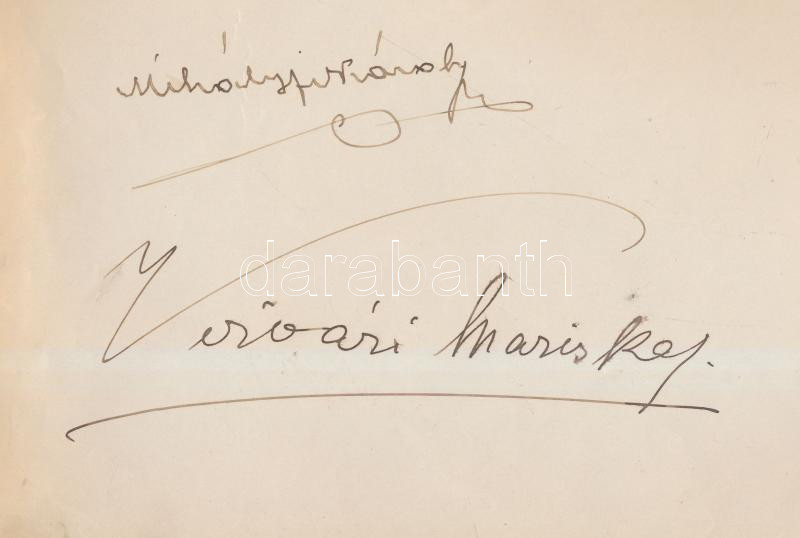 Mihályfi Károly
darabanth
Vizvári Mariska.